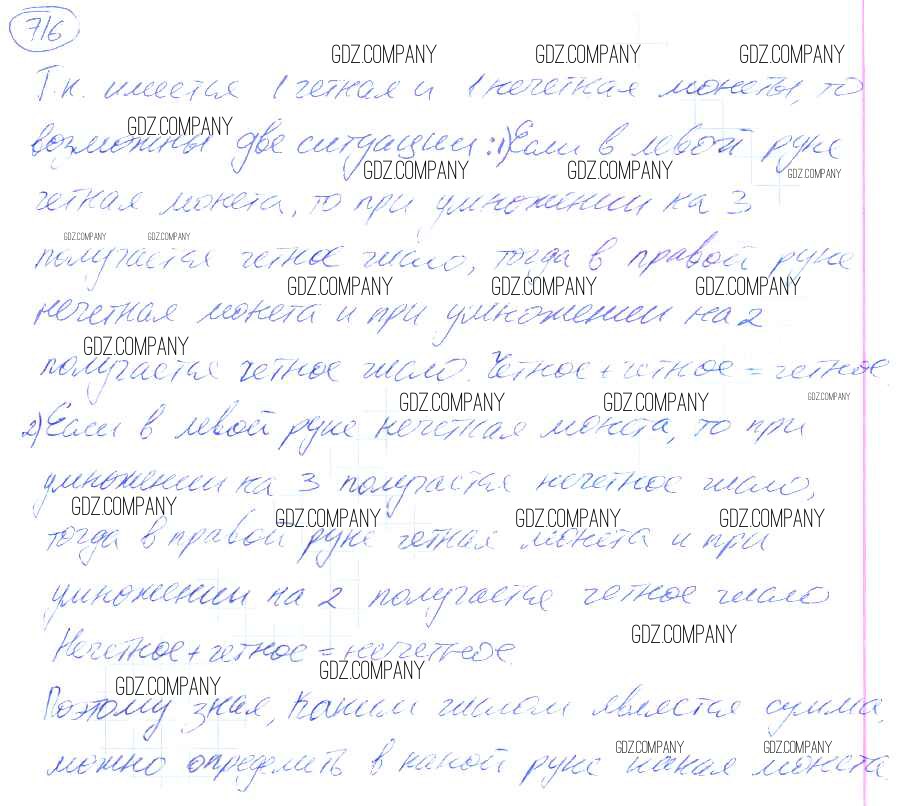 716
GDZ.COMPANY GDZ.COMPANY GDZ.COMPANY
Т.к. имеется 1 четная и 1 нечетная монеты, то
GDZ.COMPANY
возможны две ситуации: 1) Если в левой руке
GDZ.COMPANY GDZ.COMPANY GDZ.COMPANY
четная монета, то при умножении на 3
GDZ.COMPANY GDZ.COMPANY
получается четное число, тогда в правой руке
GDZ.COMPANY GDZ.COMPANY GDZ.COMPANY
нечетная монета и при умножении на 2
GDZ.COMPANY
получается четное число. Четное + четное = четное.
GDZ.COMPANY GDZ.COMPANY GDZ.COMPANY
2) Если в левой руке нечетная монета, то при
умножении на 3 получается нечетное число,
GDZ.COMPANY GDZ.COMPANY GDZ.COMPANY GDZ.COMPANY
тогда в правой руке четная монета и при
умножении на 2 получается четное число
GDZ.COMPANY
Нечетное + четное = нечетное.
GDZ.COMPANY GDZ.COMPANY
Поэтому зная, каким числом является сумма,
GDZ.COMPANY GDZ.COMPANY
можно определить в какой руке какая монета